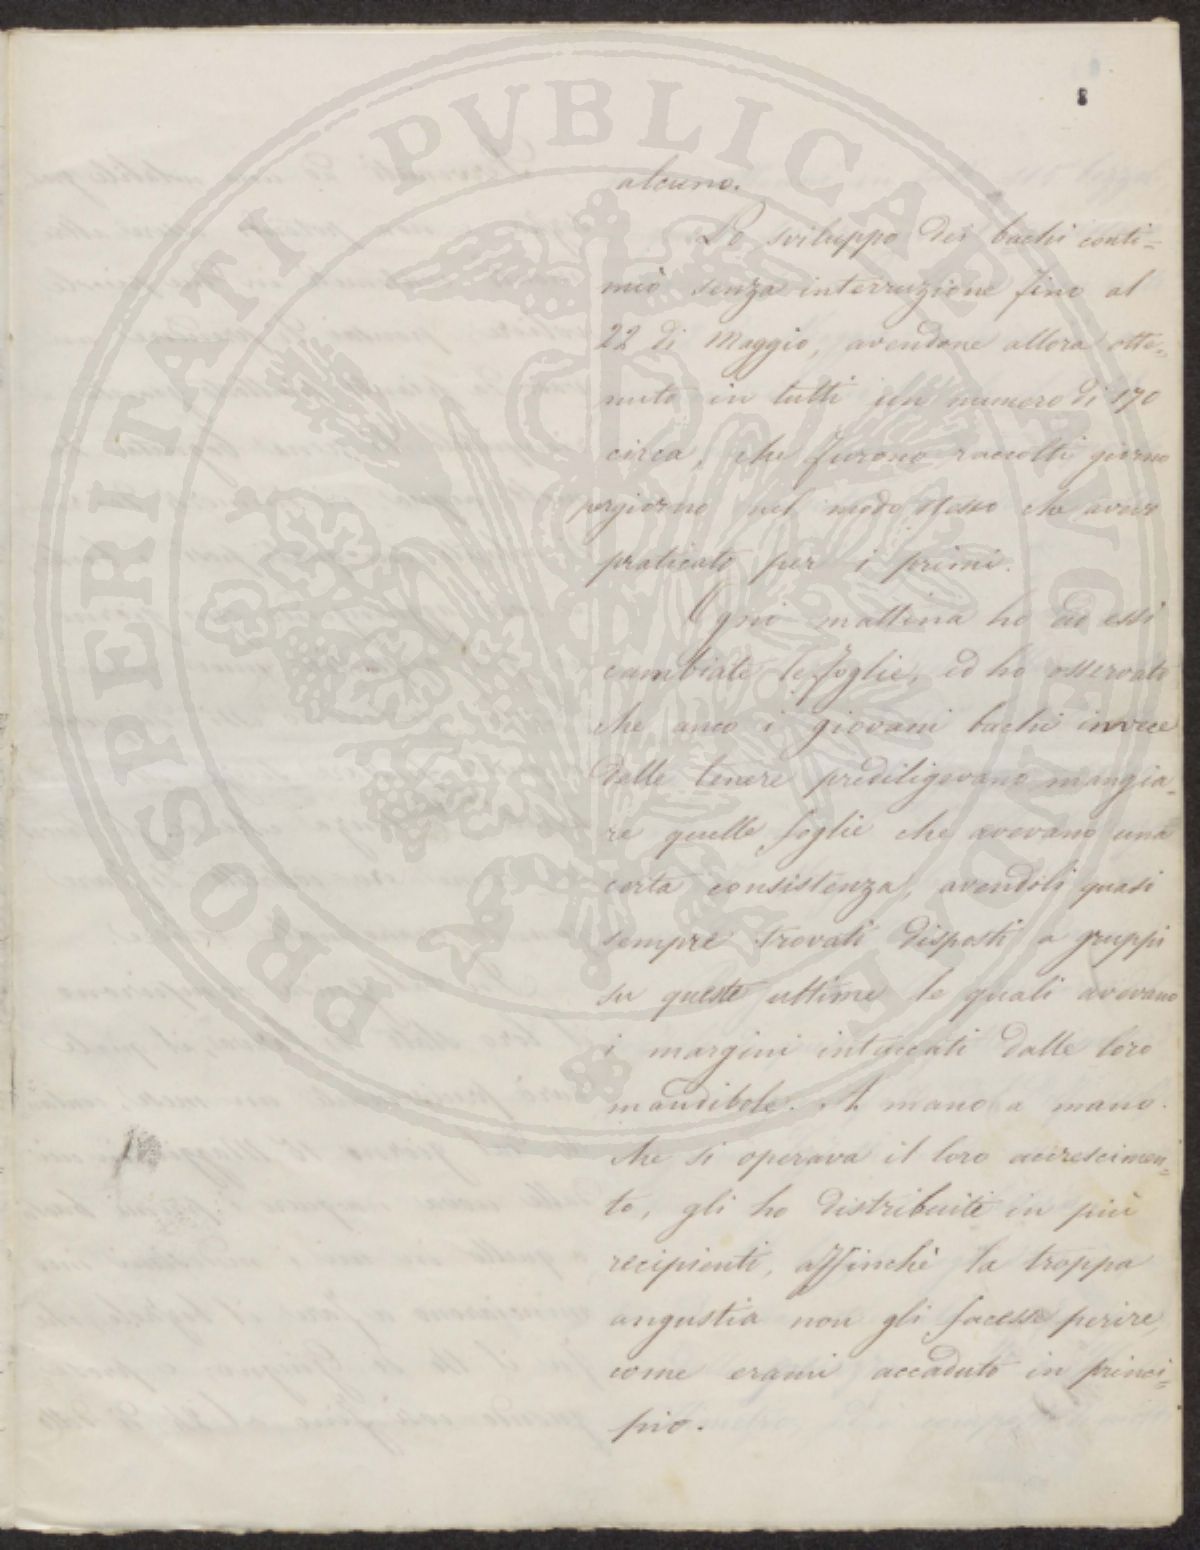 8
PROSPERITATI PVBLICAE AVGENDAE
alcuno.
Lo sviluppo dei bachi conti=
nuò senza interruzione fino al
22 di Maggio, avendone allora otte=
nuto in tutti un numero di 170
circa, che furono raccolti giorno
per giorno nel modo stesso che avevo
praticato per i primi.
Ogni mattina ho ad essi
cambiate le foglie, ed ho osservato
che anco i giovani bachi invece
delle tenere prediligevano mangia=
re quelle foglie che avevano una
certa consistenza, avendoli quasi
sempre trovati disposti a gruppi
su queste ultime le quali avevano
i margini intaccati dalle loro
mandibole. A mano a mano
che si operava il loro accrescimen=
to, gli ho distribuiti in più
recipienti, affinchè la troppa
angustia non gli facesse perire,
come erami accaduto in princi=
pio.